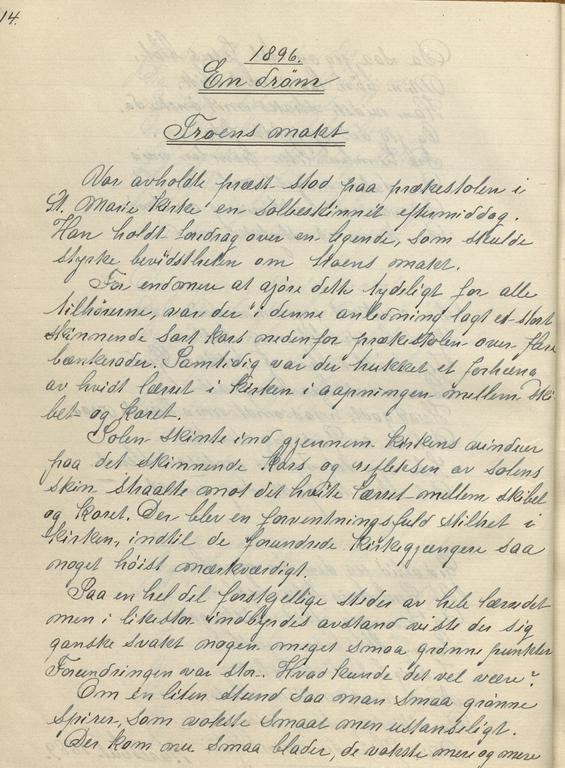 14.
1896.
En dröm
Troens makt
Vor avholdte præst stod paa prækestolen i
St. Marie kirke en solbeskinnet eftermiddag.
Han holdt foredrag over en legende, som skulde
styrke bevidstheten om troens makt.
For endmere at gjöre dette tydeligt for alle
tilhörerne, var der i denne anledning lagt et stort
skinnende sort kors nedenfor prækestolen over flere
bænkerader. Samtidig var der trukket et forhæng
av hvidt lærret i kirken i aapningen mellem ski
bet og koret.
Solen skinte ind gjennem kirkens vinduer
paa det skinnende kors og refleksen av solens
skin straalte mot det hvite lærret mellem skibet
og koret. Der blev en forventningsfuld stilhet i
kirken, indtil de forundrede kirkegjængere saa
noget höist mærkværdigt.
Paa en hel del forskjellige steder av hele lærredet
men i like stor indbyrdes avstand viste der sig
ganske svakt nogen meget smaa grönne punkter
Forundringen var stor. Hvad kunde det vel være?
Om en liten stund saa man smaa grönne
spirer, som vokste smaat men ustanseligt.
Der kom nu smaa blader, de vokste mere og mere